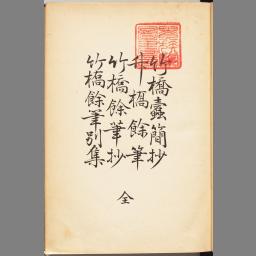 竹橋蠹簡抄
竹橋餘筆
竹橋餘筆抄
竹橋餘筆別集
全